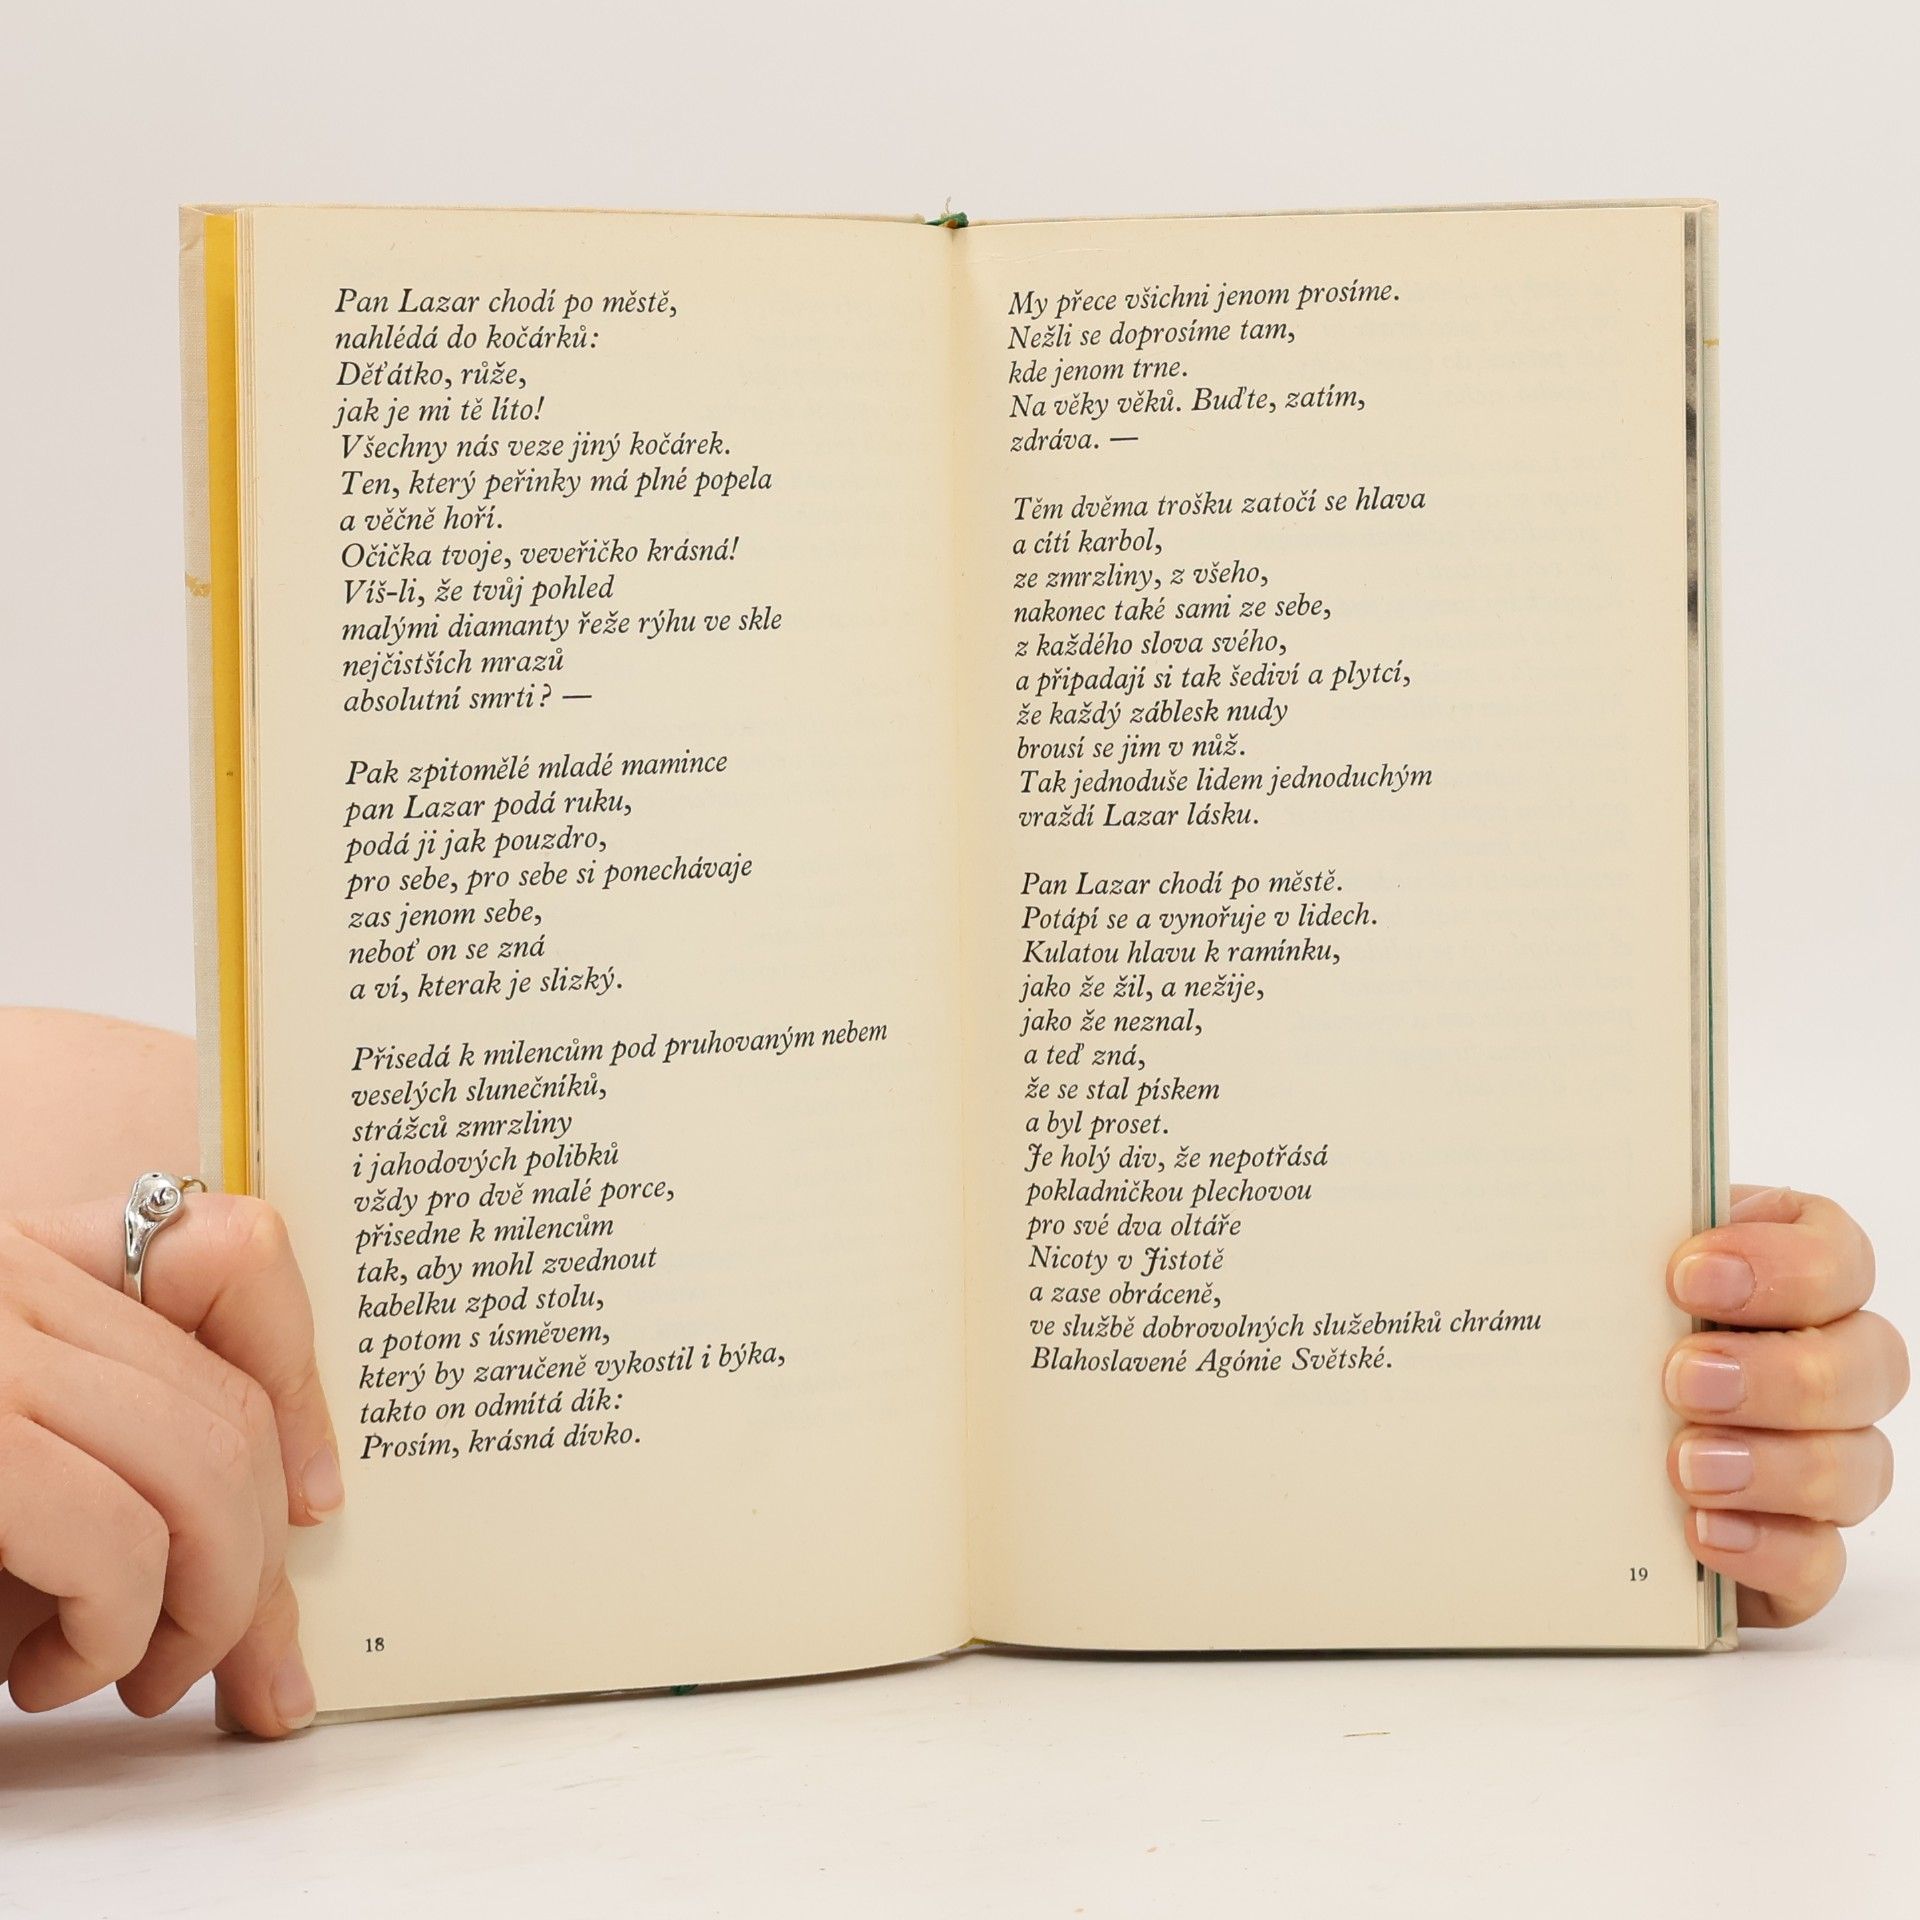 Pan Lazar chodí po městě,
nahlédá do kočárků:
Děťátko, růže,
jak je mi tě líto!
Všechny nás veze jiný kočárek.
Ten, který peřinky má plné popela
a věčně hoří.
Očička tvoje, veveřičko krásná!
Víš-li, že tvůj pohled
malými diamanty řeže rýhu ve skle
nejčistších mrazů
absolutní smrti? —
Pak zpitomělé mladé mamince
pan Lazar podá ruku,
podá ji jak pouzdro,
pro sebe, pro sebe si ponechávaje
zas jenom sebe,
neboť on se zná
a ví, kterak je slizký.
Přisedá k milencům pod pruhovaným nebem
veselých slunečníků,
strážců zmrzliny
i jahodových polibků
vždy pro dvě malé porce,
přisedne k milencům
tak, aby mohl zvednout
kabelku zpod stolu,
a potom s úsměvem,
který by zaručeně vykostil i býka,
takto on odmítá dík:
Prosím, krásná dívko.
18
My přece všichni jenom prosíme.
Nežli se doprosíme tam,
kde jenom trne.
Na věky věků. Buďte, zatím,
zdráva. —
Těm dvěma trošku zatočí se hlava
a cítí karbol,
ze zmrzliny, z všeho,
nakonec také sami ze sebe,
z každého slova svého,
a připadají si tak šediví a plytcí,
že každý záblesk nudy
brousí se jim v nůž.
Tak jednoduše lidem jednoduchým
vraždí Lazar lásku.
Pan Lazar chodí po městě.
Potápí se a vynořuje v lidech.
Kulatou hlavu k ramínku,
jako že žil, a nežije,
jako že neznal,
a teď zná,
že se stal pískem
a byl proset.
Je holý div, že nepotřásá
pokladničkou plechovou
pro své dva oltáře
Nicoty v Jistotě
a zase obráceně,
ve službě dobrovolných služebníků chrámu
Blahoslavené Agónie Světské.
19